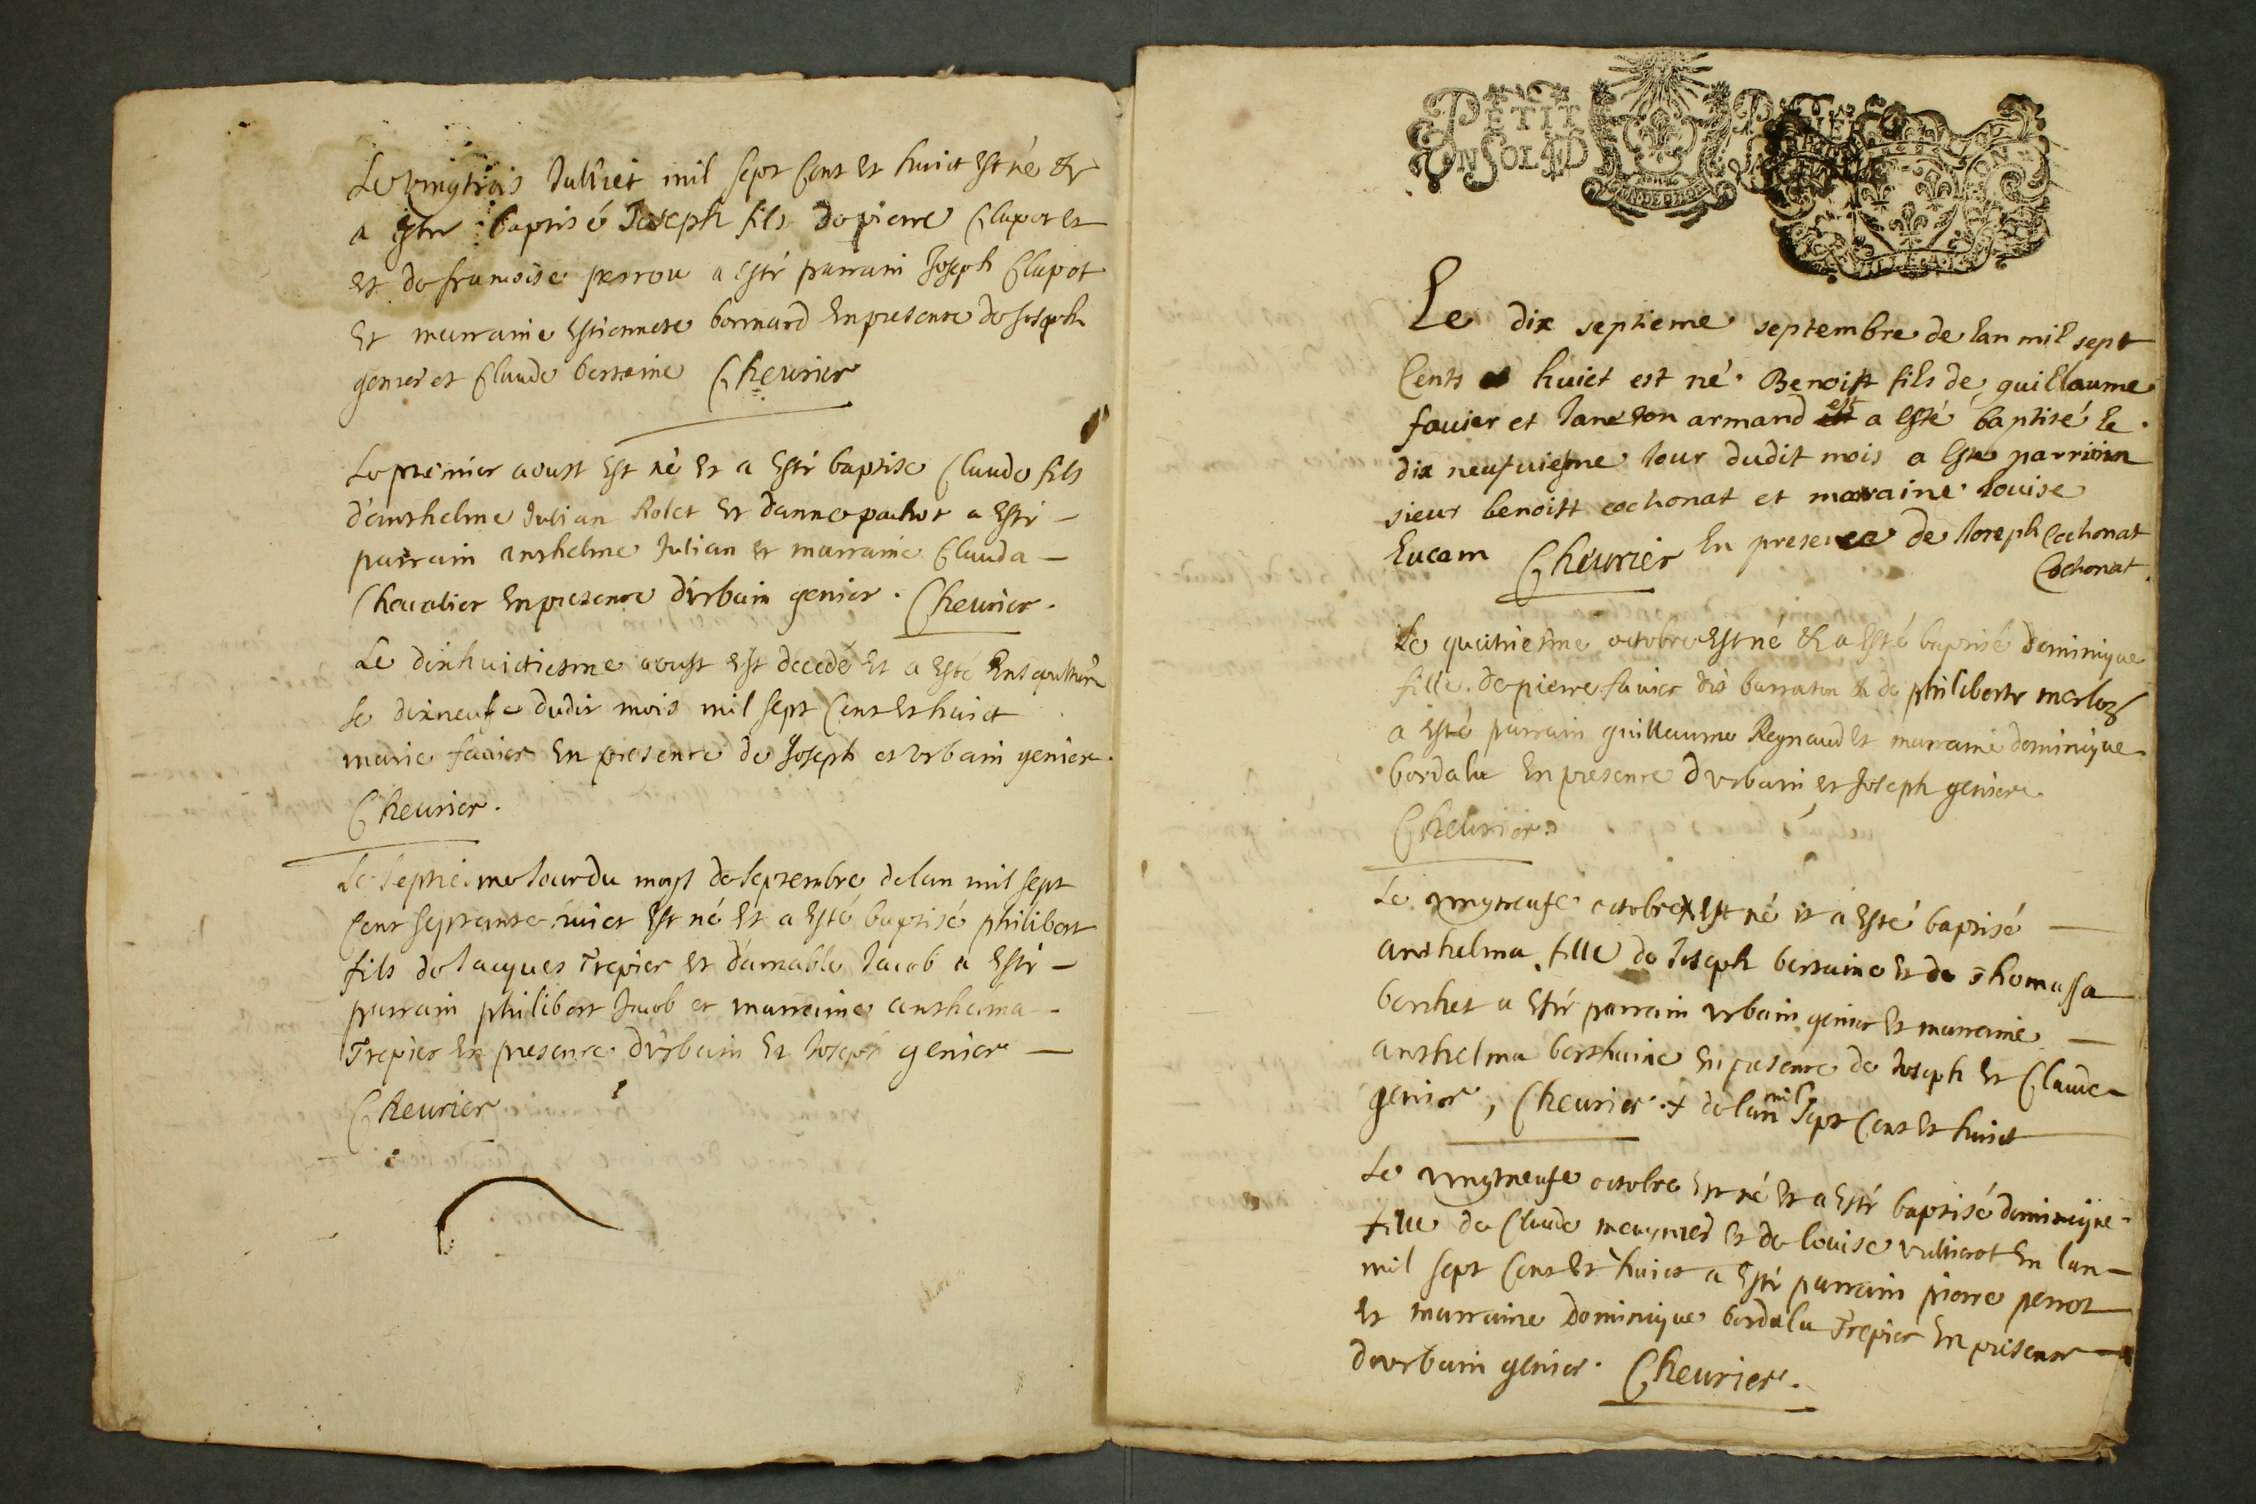 Le vingtrois Julliet mil sept Cent et huict est né et
a este baptisé Joseph fils de pierre Clapot et
et de francoise perrou a esté parrain Joseph Clapot
et marraine estiennete bornard en presence de Joseph
genier et Claude bertaine Cheurier
Le premier aoust est né et a esté baptise Claude fils
d'anthelme Julian Rolet et d'anne pachot a esté
parrain anthelme Julian et marraine Clauda
Chevalier en presence d'urbain genier. Cheurier.
Le dixhuictiesme aoust est decedé et a esté Ensepulturé
le dixneufe dudit mois mil sept Cent et huict
marie favier en presence de Joseph et urbain genier.
Cheurier.
Le septiesme Jour du moys de septembre de lan mil sept
Cent septante huict est né et a esté baptisé philibert
fils de Jacques Trepier et d'amable Jacob a esté
parrain philibert Jacob et marraine anthelma
Trepier en presence d'urbain et Joseph genier
Cheurier
PETIT PAPIER
UN SOL 4 D
Le dix septieme septembre de lan mil sept
Cents et huict est né Benoist fils de guillaume
favier et Janeton armand est a esté baptisé le
dix neufuiesme Jour dudit mois a este parriain
sieur benoist cochonat et maraine louise
Lucam Cheurier En presence de Joseph Cochonat
Cochonat
Le quatriesme octobre est né et a esté baptisé dominique
fille de pierre favier dit barraton et de philiberte merloz
a esté parrain guillaume Reynaud et marraine dominique
bordala en presence d'urbain et Joseph genier
Cheurier
Le vingtneufe octobre x est né et a esté baptisé
anthelma fille de Joseph bertaine et de thomassa
berchet a esté parrain urbain genier et marraine
anthelma berthaine en presence de Joseph et Claude
genier, Cheurier. x de lan mil sept Cent et huict
Le vingtneufe octobre est né et a esté baptisé dominique
fille de Claude meygnied et de louise vullierot en lan
mil sept Cent et huict a esté parrain pierre perrot
et marraine Dominique bordala Trepier en presence
d'urbain genier. Cheurier.